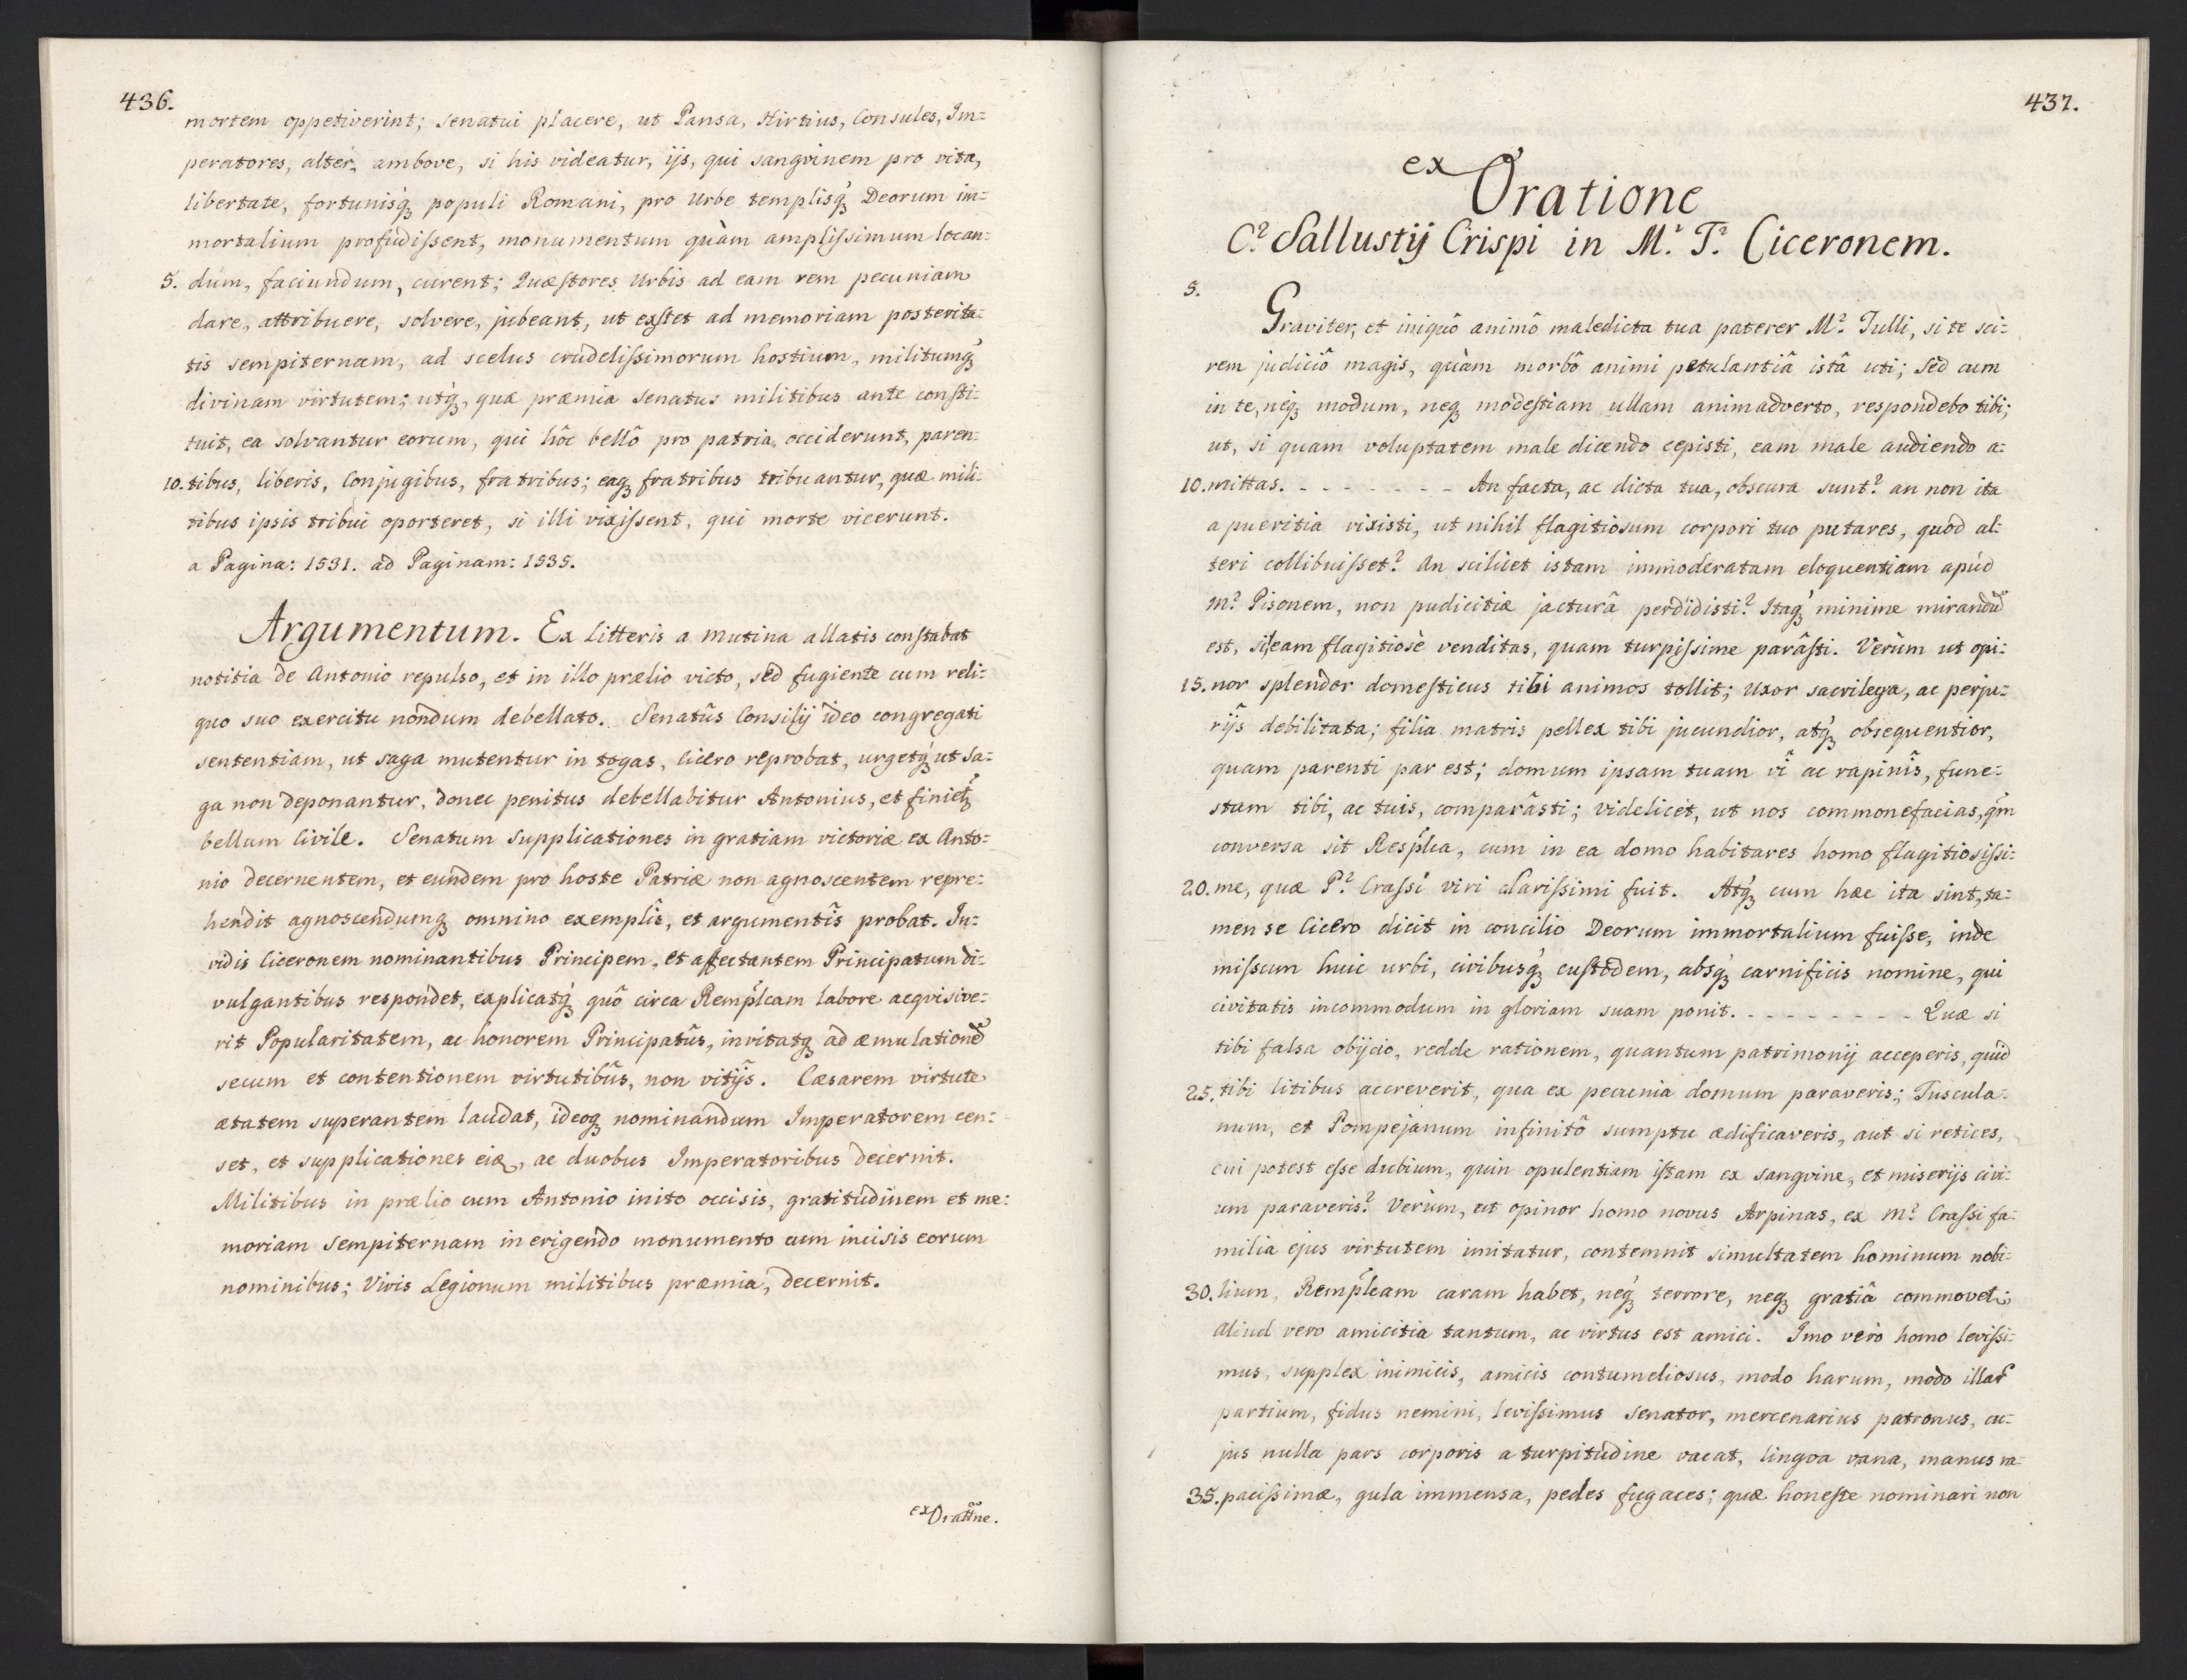 436.
mortem oppetiverint; Senatui placere, ut Pansa, Hirtius, Consules, Im=
peratores, alter, ambove, si his videatur, ijs, qui sangvinem pro vita,
libertate, fortunisq́ꝫ populi Romani, pro Urbe templisq́ꝫ Deorum im=
mortalium profudiſsent, monumentum quàm ampliſsimum locan=
5. dum, faciundum, curent; Quæstores Urbis ad eam rem pecuniam
dare, attribuere, solvere, jubeant, ut exſtet ad memoriam posterita=
tis sempiternam, ad scelus crudeliſsimorum hostium, militumq́ꝫ
divinam virtutem; utq́ꝫ, quæ præmia Senatus militibus ante conſti=
tuit, ea solvantur eorum, qui hôc bellô pro patria occiderunt, paren=
10. tibus, liberis, Conjugibus, fratribus; eaqꝫ fratribus tribuantur, quæ mili=
tibus ipsis tribui oporteret, si illi vixiſsent, qui morte vicerunt.
a Pagina: 1531. ad Paginam: 1535.
Argumentum. Ex Litteris a Mutina allatis conſtabat
notitia de Antonio repulso, et in illo prælio victo, sed fugiente cum reli=
quo suo exercitu nondum debellato. Senatûs Consilij ideo congregati
sententiam, ut saga mutentur in togas, Cicero reprobat, urgetq́ꝫ ut Sa=
ga non deponantur, donec penitus debellabitur Antonius, et finietꝫ
bellum Civile. Senatum Supplicationes in gratiam victoriæ ex Anto=
nio decernentem, et eundem pro hoste Patriæ non agnoscentem repre=
hendit agnoscendumqꝫ omnino exemplîs, et argumentîs probat. In=
vidis Ciceronem nominantibus Principem, et affectantem Principatum di=
vulgantibus respondet, explicatq́ꝫ quô circa Remp̃lcam labore acqvisive=
rit Popularitatem, ac honorem Principatûs, invitatqꝫ ad æmulationẽ
secum et contentionem virtutibûs, non vitijs. Cæsarem virtute
ætatem superantem laudat, ideoqꝫ nominandum Imperatorem cen=
set, et supplicationes eiꝫ, ac duobus Imperatoribus decernit.
Militibus in prælio cum Antonio inito occisis, gratitudinem et me=
moriam sempiternam in erigendo monumento cum incisis eorum
nominibus; Vivis Legionum militibus præmia, decernit.
ex Orat̃ne.
437.
ex Oratione
C.² Sallustij Crispi in M.² T.² Ciceronem.
5.
Graviter, et iniquô animô maledicta tua paterer M.² Tulli, si te sci=
rem judiciô magis, quàm morbô animi petulantiâ istâ uti; Sed cum
in te, neq́ꝫ modum, neqꝫ modeſtiam ullam animadverto, respondebo tibi;
ut, si quam voluptatem male dicendo cepisti, eam male audiendo a=
10. mittas. - - - - - - - - An facta, ac dicta tua, obscura sunt? an non ita
a pueritia vixisti, ut nihil flagitiosum corpori tuo putares, quod al=
teri collibuiſset? An scilicet istam immoderatam eloquentiam apud
M.² Pisonem, non pudicitiæ jacturâ perdidisti? Itaq́ꝫ minime mirandũ
est, si eam flagitiosè venditas, quam turpiſsime parâſti. Verùm ut opi=
15. nor splendor domeſticus tibi animos tollit; Uxor sacrilega, ac perju=
rijs debilitata; filia matris pellex tibi jucundior, atq́ꝫ obsequentior,
quam parenti par est; domum ipsam tuam vî ac rapinîs, fune=
stam tibi, ac tuis, comparâsti; videlicet, ut nos commonefacias, q̃m
conversa sit Resp̃lca, cum in ea domo habitares homo flagitiosiſsi=
20. me, quæ P.² Craſsi viri clariſsimi fuit. Atq́ꝫ cum hæc ita sint, ta=
men se Cicero dicit in concilio Deorum immortalium fuiſse, inde
miſsum huic urbi, civibusq́ꝫ cuſtodem, absq́ꝫ carnificis nomine, qui
civitatis incommodum in gloriam suam ponit. - - - - - - - - - Quæ si
tibi falsa obijcio, redde rationem, quantum patrimonij acceperis, quid
25. tibi litibus accreverit, qua ex pecunia domum paraveris; Tuscula=
num, et Pompejanum infinitô sumptu ædificaveris, aut si retices,
cui potest eſse dubium, quin opulentiam iſtam ex sangvine, et miserijs civi=
um paraveris? Verùm, ut opinor homo novus Arpinas, ex M.² Craſsi fa=
milia ejus virtutem imitatur, contemnit simultatem hominum nobi=
30. lium, Remp̃lcam caram habet, neq́ꝫ terrore, neqꝫ gratiâ commovetꝫ
aliud vero amicitia tantum, ac virtus est amici. Imo verò homo leviſsi=
mus, supplex inimicis, amicis contumeliosus, modo harum, modo illar̃
partium, fidus nemini, leviſsimus Senator, mercenarius patronus, cu=
jus nulla pars corporis a turpitudine vacat, lingva vana, manus ra=
35. paciſsimæ, gula immensa, pedes fugaces; quæ honeſte nominari non